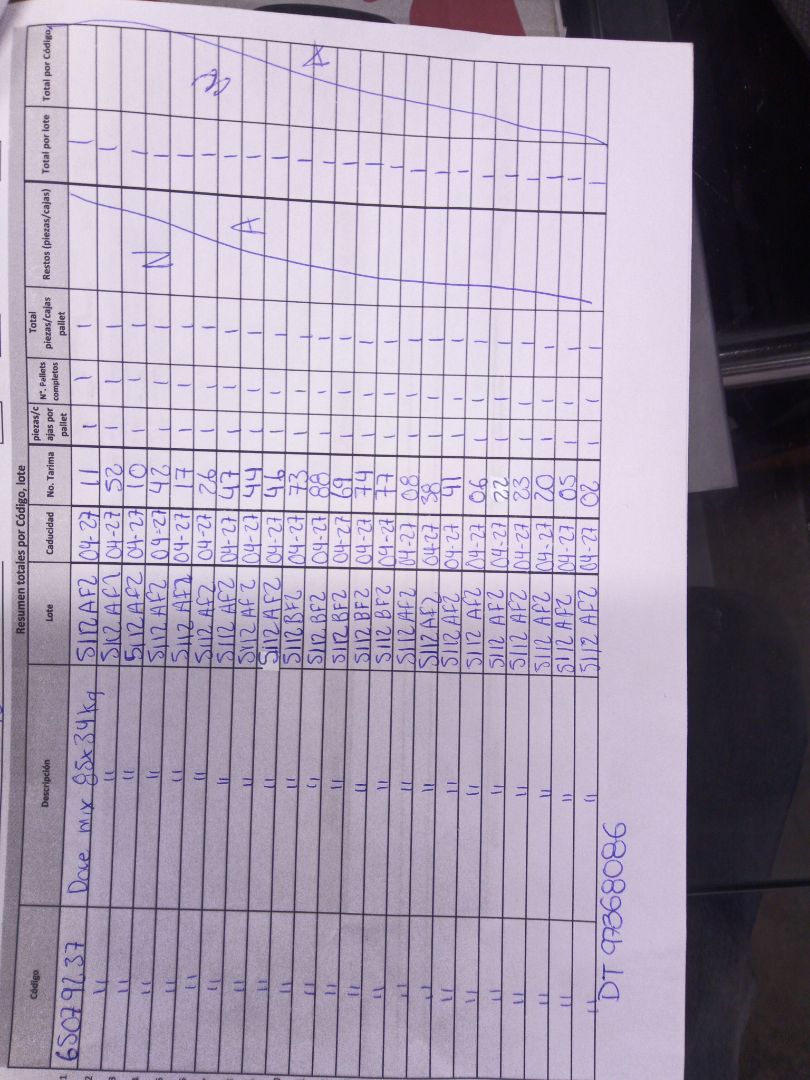 Resumen totales por Código, lote
Código Descripción Lote Caducidad No. Tarima piezas/cajas por pallet N°. Pallets completos Total piezas/cajas pallet Restos (piezas/cajas) Total por lote Total por Código
1 65079237 Dove mix 85x34kg 5112 AF2 04-27 11 1 1 1 1
2 " " 5112 AF2 04-27 52 1 1 1 1
3 " " 5112 AF2 04-27 10 1 1 1 1
" " 5112 AF2 04-27 42 1 1 1 N 1
" " 5112 AF2 04-27 17 1 1 1 1
" " 5112 AF2 04-27 26 1 1 1 1
" " 5112 AF2 04-27 47 1 1 1 1
" " 5112 AF2 04-27 44 1 1 1 A 1
" " 5112 AF2 04-27 46 1 1 1 1
" " 5112 BF2 04-27 73 1 1 1 1
" " 5112 BF2 04-27 88 1 1 1 1 A
" " 5112 BF2 04-27 69 1 1 1 1
" " 5112 BF2 04-27 74 1 1 1 1
" " 5112 BF2 04-27 77 1 1 1 1
" " 5112 AF2 04-27 08 1 1 1 1
" " 5112 AF2 04-27 38 1 1 1 1
" " 5112 AF2 04-27 41 1 1 1 1
" " 5112 AF2 04-27 06 1 1 1 1
" " 5112 AF2 04-27 22 1 1 1 1
" " 5112 AF2 04-27 23 1 1 1 1
" " 5112 AF2 04-27 20 1 1 1 1
" " 5112 AF2 04-27 05 1 1 1 1
" " 5112 AF2 04-27 02 1 1 1 1
DT 97368086